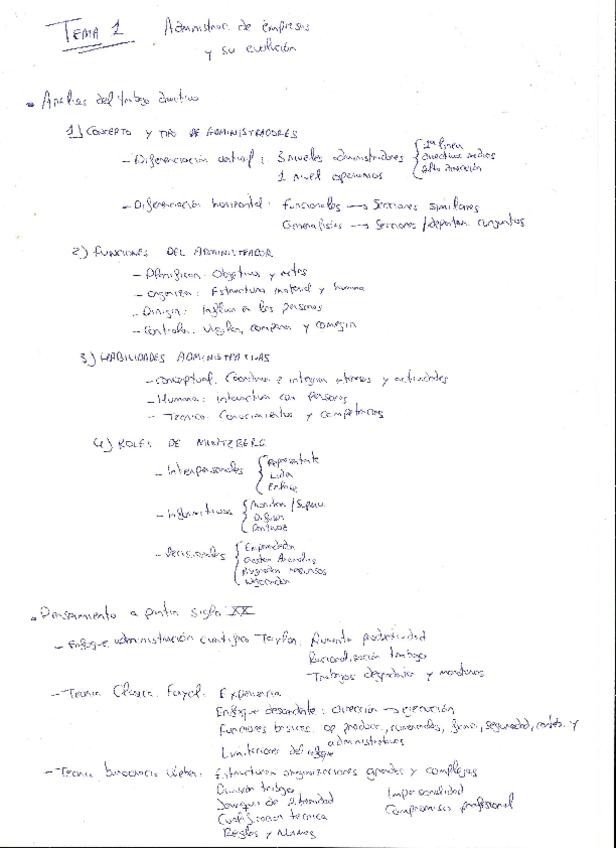 TEMA 1 Administrac. de empresas
y su evolución
• Análisis del trabajo directivo
1) CONCEPTO Y TIPO DE ADMINISTRADORES
- Diferenciación vertical: 3 niveles administradores { 1ª línea
directivos medios
1 nivel operarios alta dirección
- Diferenciación horizontal: Funcionales → Secciones similares
Generalistas → Secciones/departam. conjuntos
2) FUNCIONES DEL ADMINISTRADOR
- Planificar: Objetivos y metas
- Organizar: Estructura material y humana
- Dirigir: Influir en las personas
- Controlar: Vigilar, comparar y corregir
3) HABILIDADES ADMINISTRATIVAS
- Conceptual: Coordinar e integrar intereses y actividades
- Humana: interactuar con personas
- Técnica: Conocimientos y competencias
4) ROLES DE MINTZBERG
- Interpersonales { Representante
Líder
Enlace
- Informativos { Monitor/Superv.
Difusor
Portavoz
- Decisionales { Emprendedor
Gestor Anomalías
Asignador recursos
Negociador
• Pensamiento a partir siglo XX
- Enfoque administración científica - Taylor. Aumenta productividad
Racionalización trabajo
- Trabajos degradantes y monótonos
- Teoría Clásica. Fayol. Experiencia
Enfoque descendente: dirección → ejecución
Funciones básicas: producc., comerciales, financ., seguridad, contab. y
administrativas
Limitaciones del enfoque
- Teoría burocracia Weber. Estructuras organizaciones grandes y complejas
División trabajo Impersonalidad
Jerarquía de Autoridad Compromiso profesional
Cualificación técnica
Reglas y Normas